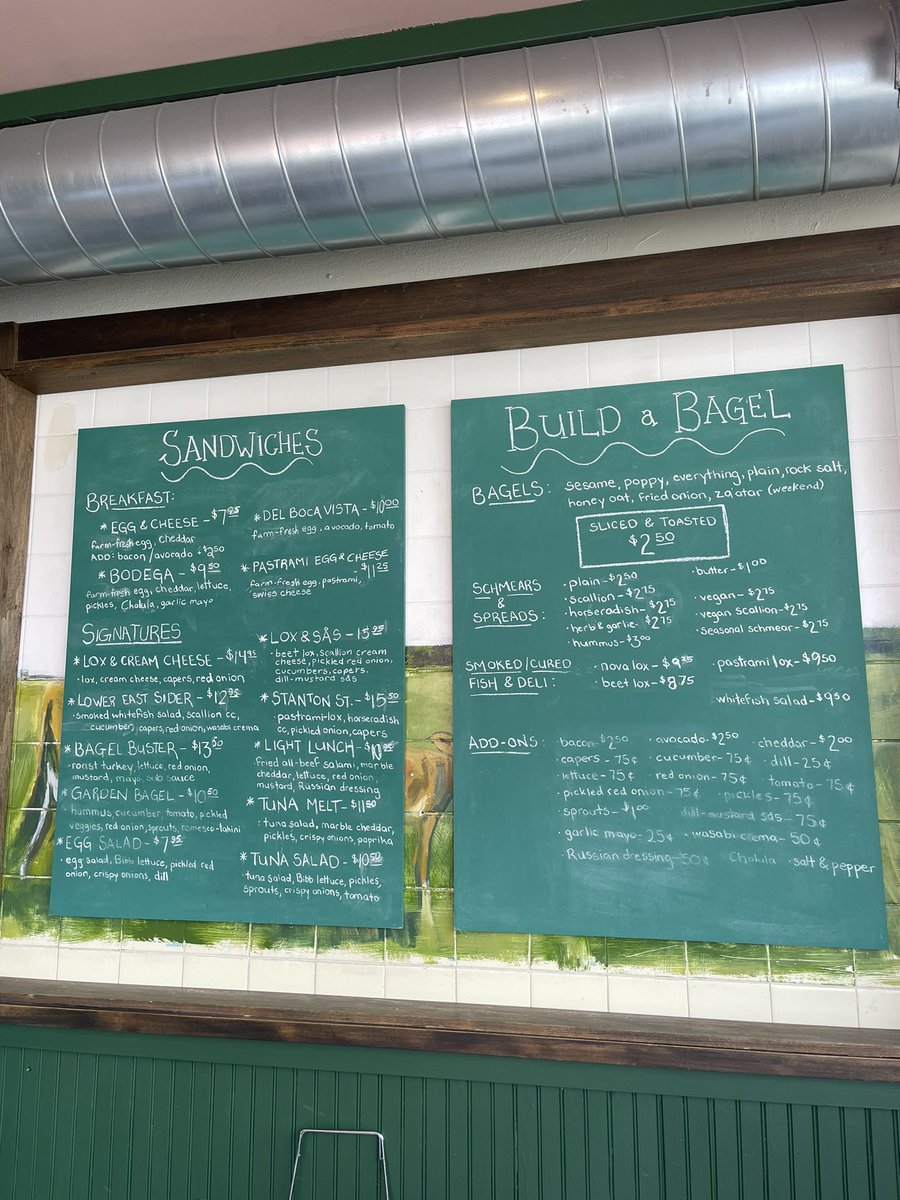 SANDWICHES
BREAKFAST:
* EGG & CHEESE - $7.95
farm-fresh egg, cheddar
ADD: bacon / avocado +$2.50
* BODEGA - $9.50
farm-fresh egg, cheddar, lettuce,
pickles, Cholula, garlic mayo
* DEL BOCA VISTA - $10.00
farm-fresh egg, avocado, tomato
* PASTRAMI EGG & CHEESE
- $11.25
farm-fresh egg, pastrami,
swiss cheese
SIGNATURES
* LOX & CREAM CHEESE - $14.95
· lox, cream cheese, capers, red onion
* LOWER EAST SIDER - $12.95
· smoked whitefish salad, scallion cc,
cucumber, capers, red onion, wasabi crema
* BAGEL BUSTER - $13.50
· roast turkey, lettuce, red onion,
mustard, mayo, sauce
* GARDEN BAGEL - $10.50
· hummus, cucumber, tomato, pickled
veggies, red onion, sprouts, romesco-tahini
* EGG SALAD - $7.95
· egg salad, Bibb lettuce, pickled red
onion, crispy onions, dill
* LOX & SÅS - 15.25
· beet lox, scallion cream
cheese, pickled red onion,
cucumbers, capers,
dill-mustard sås
* STANTON ST. - $15.50
· pastrami-lox, horseradish
cc, pickled onion, capers
* LIGHT LUNCH - $10.95
fried all-beef salami, marble
cheddar, lettuce, red onion,
mustard, Russian dressing
* TUNA MELT - $11.50
· tuna salad, marble cheddar,
pickles, crispy onions, paprika
* TUNA SALAD - $10.50
· tuna salad, Bibb lettuce, pickles,
sprouts, crispy onions, tomato
BUILD a BAGEL
BAGELS: sesame, poppy, everything, plain, rock salt,
honey oat, fried onion, za'atar (weekend)
SLICED & TOASTED
$2.50
SCHMEARS
&
SPREADS:
· plain - $2.50
· scallion - $2.75
· horseradish - $2.75
· herb & garlic - $2.75
· hummus - $3.00
· butter - $1.00
· vegan - $2.75
· vegan scallion - $2.75
· seasonal schmear - $2.75
SMOKED/CURED
FISH & DELI:
· nova lox - $9.25
· beet lox - $8.75
· pastrami lox - $9.50
whitefish salad - $9.50
ADD-ONS: bacon - $2.50 · avocado - $2.50 cheddar - $2.00
· capers - 75¢ · cucumber - 75¢ · dill - 25¢
· lettuce - 75¢ · red onion - 75¢ · tomato - 75¢
· pickled red onion - 75¢ · pickles - 75¢
· sprouts - $1.00 dill-mustard sås - 75¢
· garlic mayo - 25¢ · wasabi crema - 50¢
· Russian dressing - 50¢ Cholula · salt & pepper